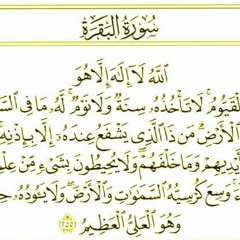 سُورَةُ الْبَقَرَةِ
اللَّهُ لَا إِلَٰهَ إِلَّا هُوَ
الْقَيُّومُ لَا تَأْخُذُهُ سِنَةٌ وَلَا نَوْمٌ لَهُ مَا فِي السَّ
الْأَرْضِ مَنْ ذَا الَّذِي يَشْفَعُ عِنْدَهُ إِلَّا بِإِذْنِهِ
أَيْدِيهِمْ وَمَا خَلْفَهُمْ وَلَا يُحِيطُونَ بِشَيْءٍ مِنْ عِلْمِ
وَسِعَ كُرْسِيُّهُ السَّمَاوَاتِ وَالْأَرْضَ وَلَا يَئُودُهُ حِ
وَهُوَ الْعَلِيُّ الْعَظِيمُ ٢٥٥